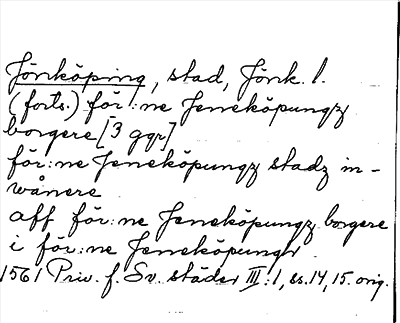 Jönköping, stad, Jönk. l.
(forts.) för:ne Jeneköpungz
borgere [3 ggr]
för:ne Jeneköpungz stadz in-
wånere
aff för:ne Jeneköpungz borgere
i för:ne Jeneköpungr
1561 Priv. f. Sv. städer III:1, ss. 14, 15. orig.